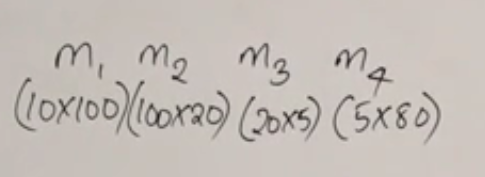 m₁ m₂ m₃ m₄
(10x100)(100x20) (20x5) (5x80)